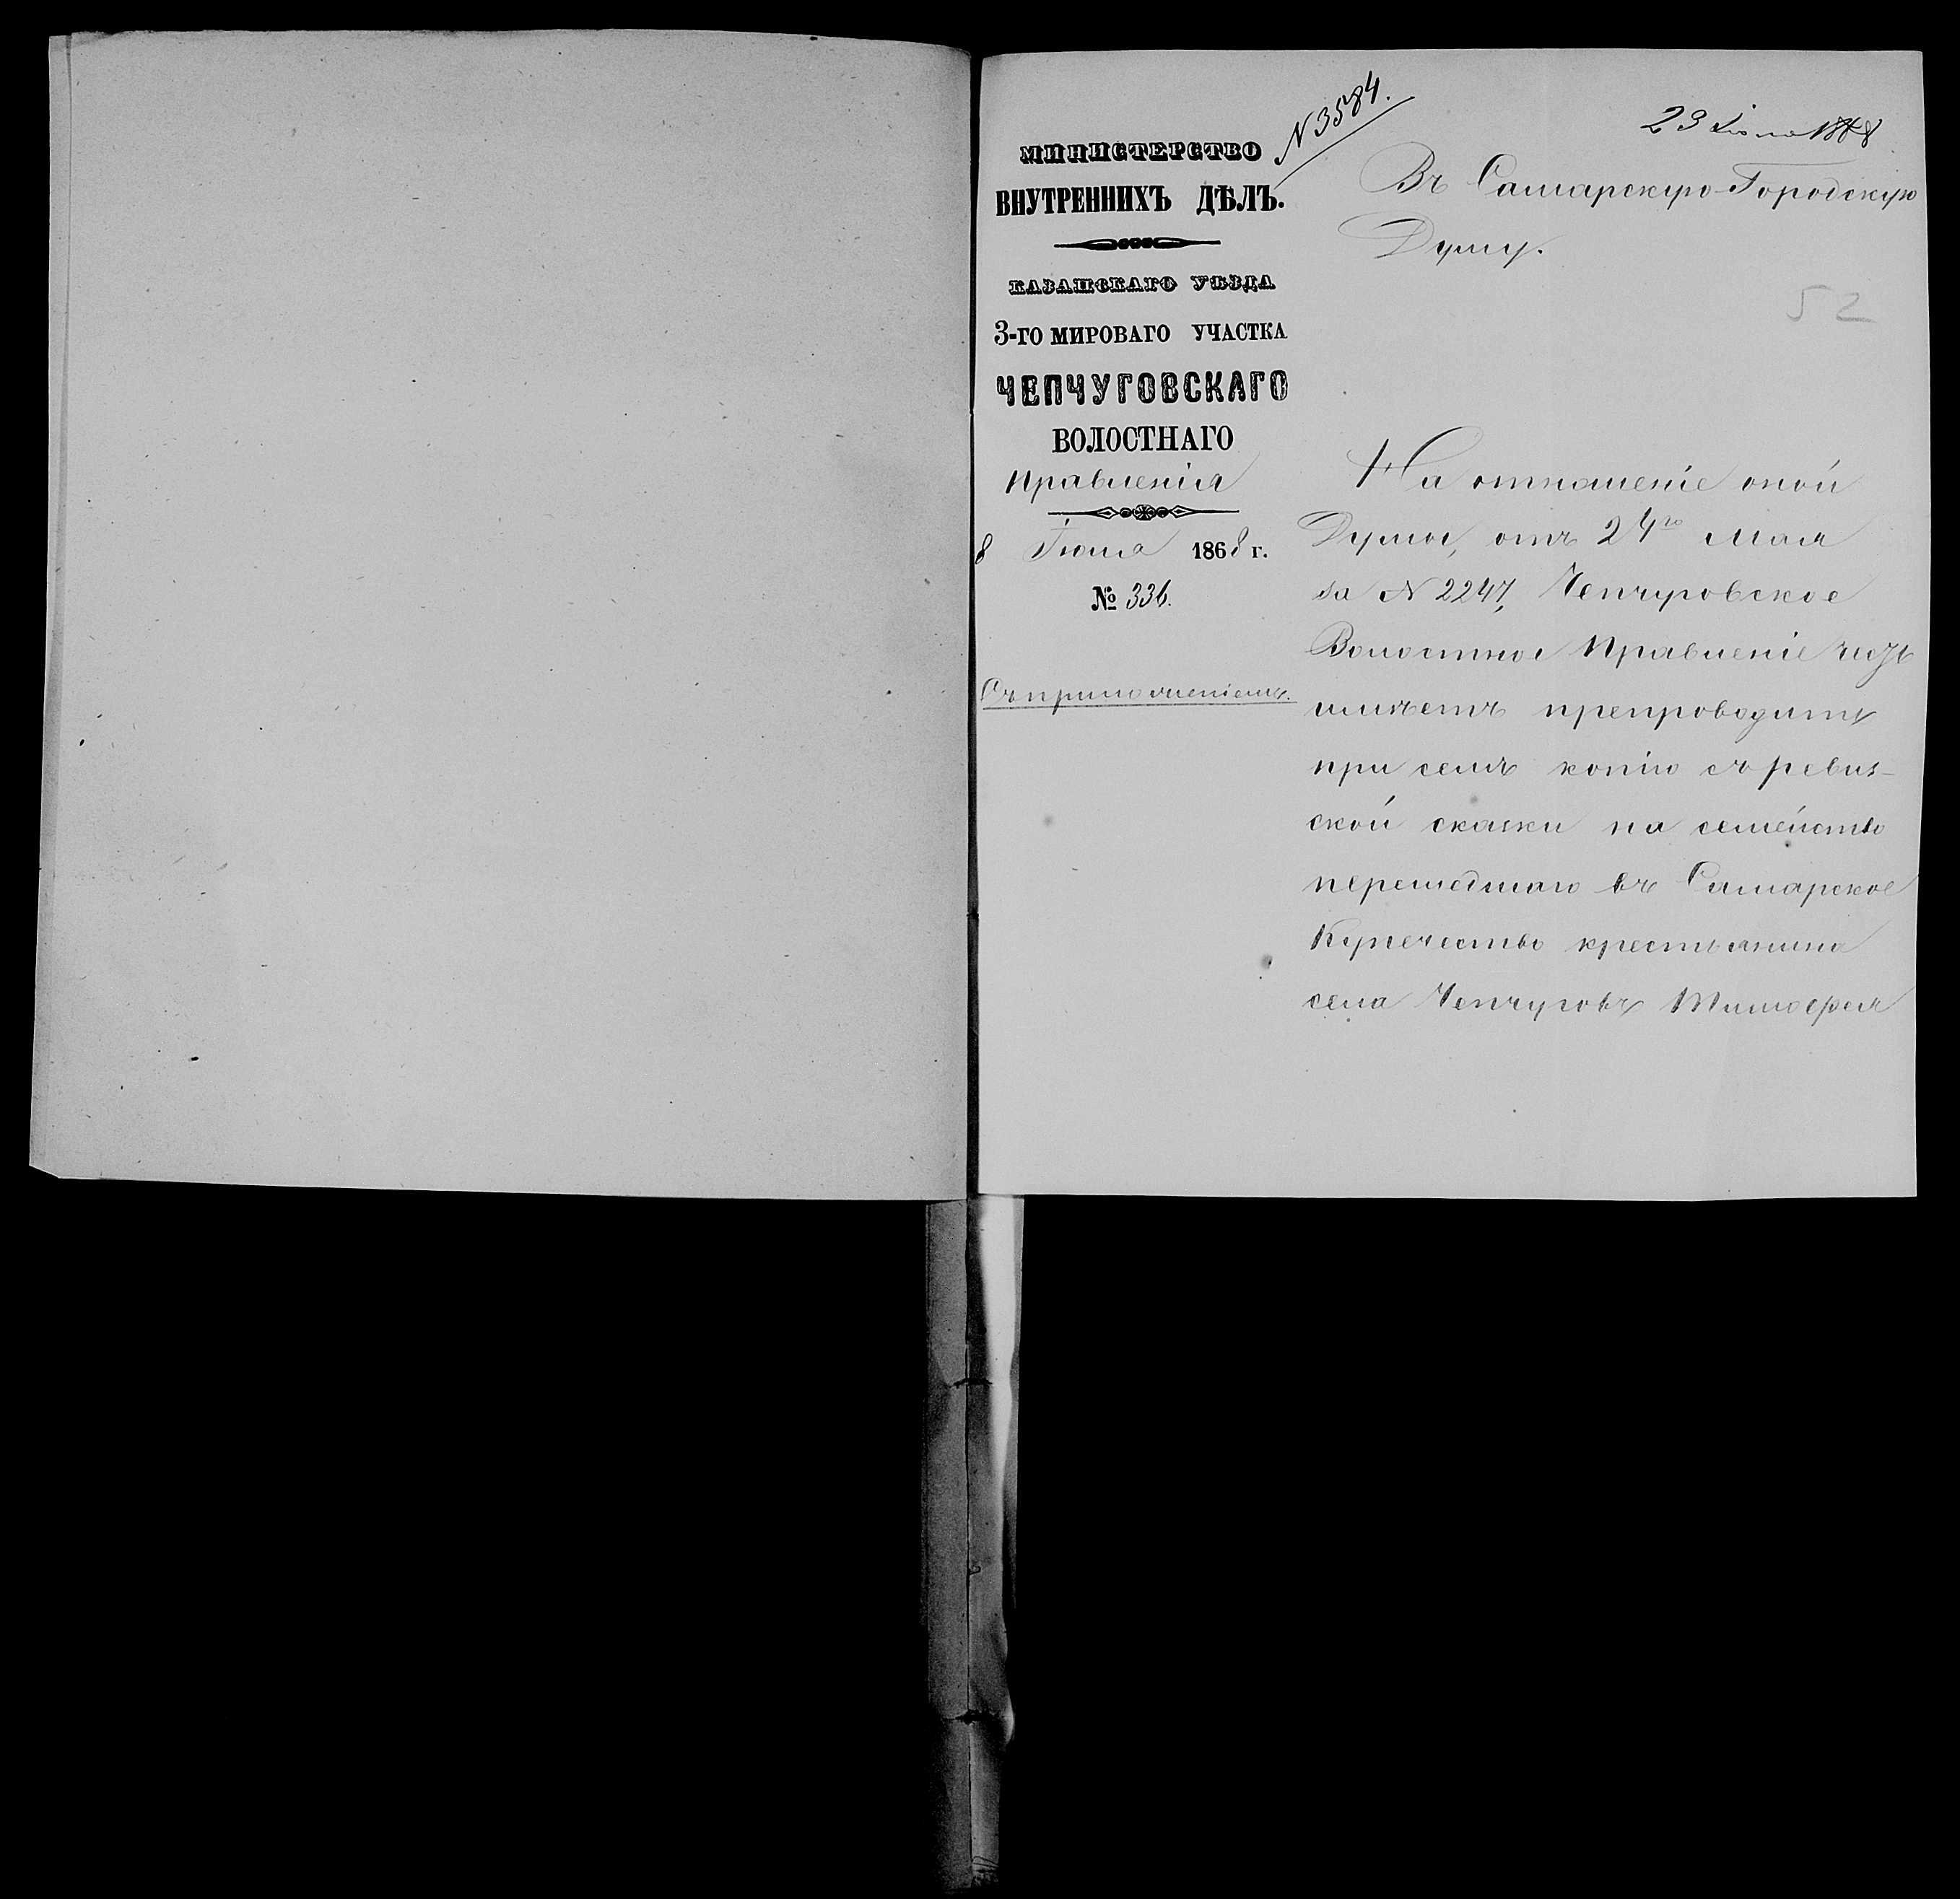 N 3584.
23 Июня 1868
МИНИСТЕРСТВО
ВНУТРЕННИХЪ ДѢЛЪ.
КАЗАНСКАГО УѢЗДА
3-ГО МИРОВАГО УЧАСТКА
ЧЕПЧУГОВСКАГО
ВОЛОСТНАГО
Правленія
8 Іюня 1868 г.
№ 336.
Съ приложеніемъ.
Въ Самарскую Городскую
Думу.
52
На отношеніе оной
Думы, отъ 24го Мая
за N 2247, Чепчуговское
Волостное Правленіе честь
имѣетъ препроводить
при семъ копію съ ревиз-
ской сказки на семейство
перешедшаго въ Самарское
Купечество крестьянина
села Чепчуговъ Тимофея